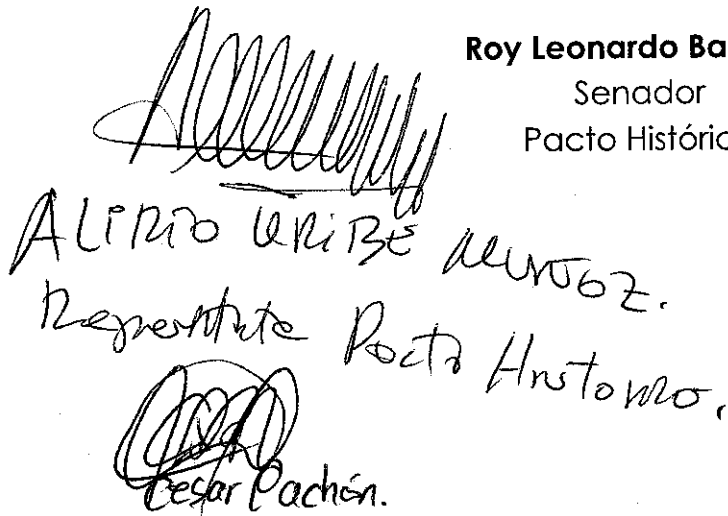 Roy Leonardo Ba
Senador
Pacto Históric
ALIRIO URIBE MUÑOZ.
Representante Pacto Historico.
Cesar Pachón.